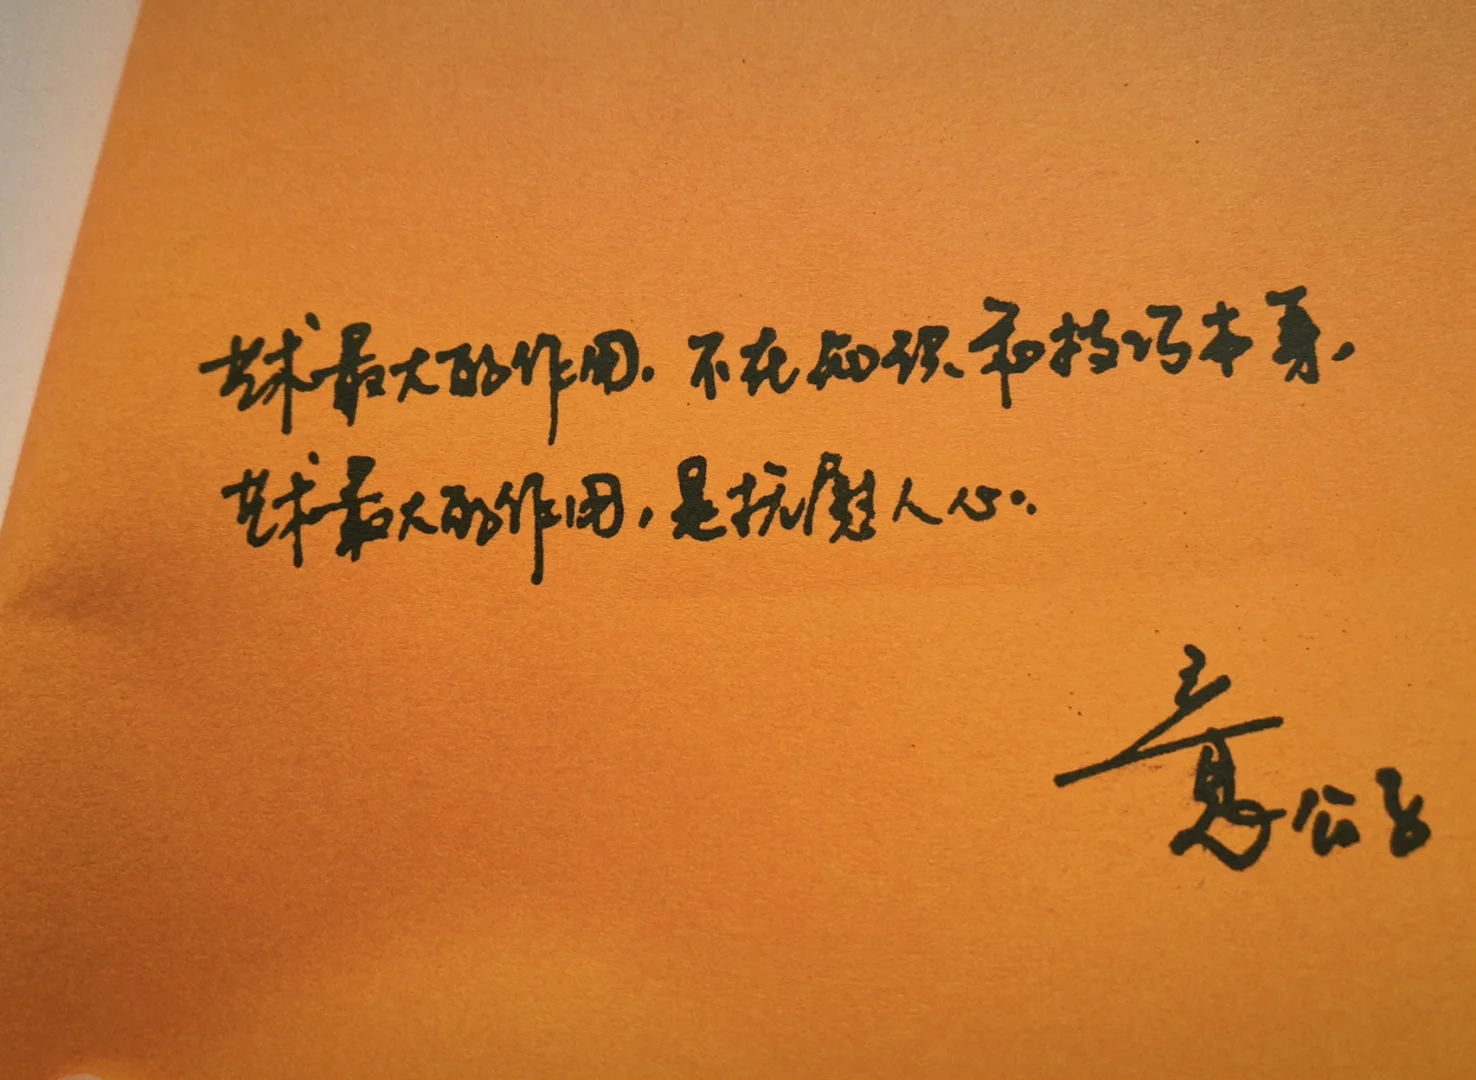 艺术最大的作用，不在知识和技巧本身，
艺术最大的作用，是抚慰人心。
意公子